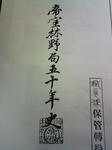 帝室林野局五十年史
保管轉換